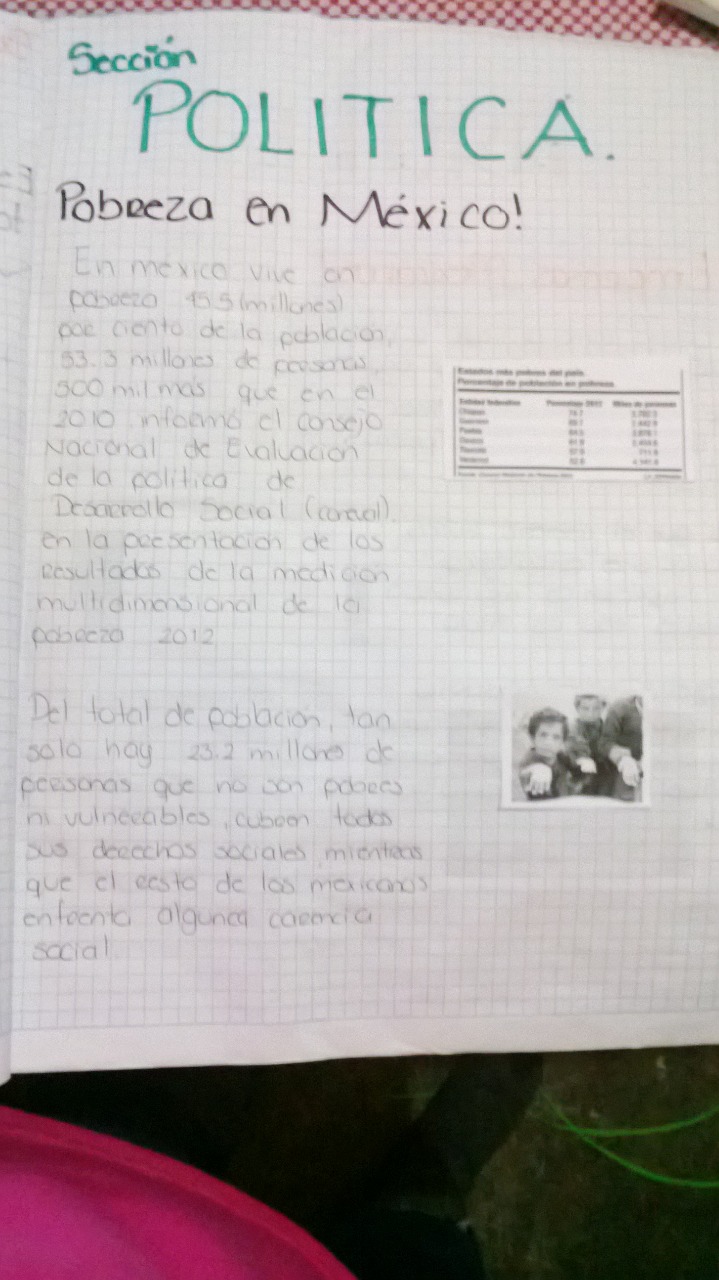 Sección
POLITICA.
Pobreza en México!
En mexico vive en
pobreza 45.5 (millones)
por ciento de la poblacion,
53.3 millones de personas,
500 mil mas que en el
2010 informó el consejo
Nacional de Evaluación
de la politica de
Desarrollo Social (coneval).
en la presentacion de los
resultados de la medicion
multidimensional de la
pobreza 2012
Estados más pobres del país.
Porcentaje de población en pobreza.
Entidad federativa Porcentaje 2012 Miles de personas
Chiapas
Guerrero
Puebla
Oaxaca
Tlaxcala
Veracruz
Del total de poblacion, tan
solo hay 23.2 millones de
personas que no son pobres
ni vulnerables, cubren todos
sus derechos sociales mientras
que el resto de los mexicanos
enfrenta alguna carencia
social